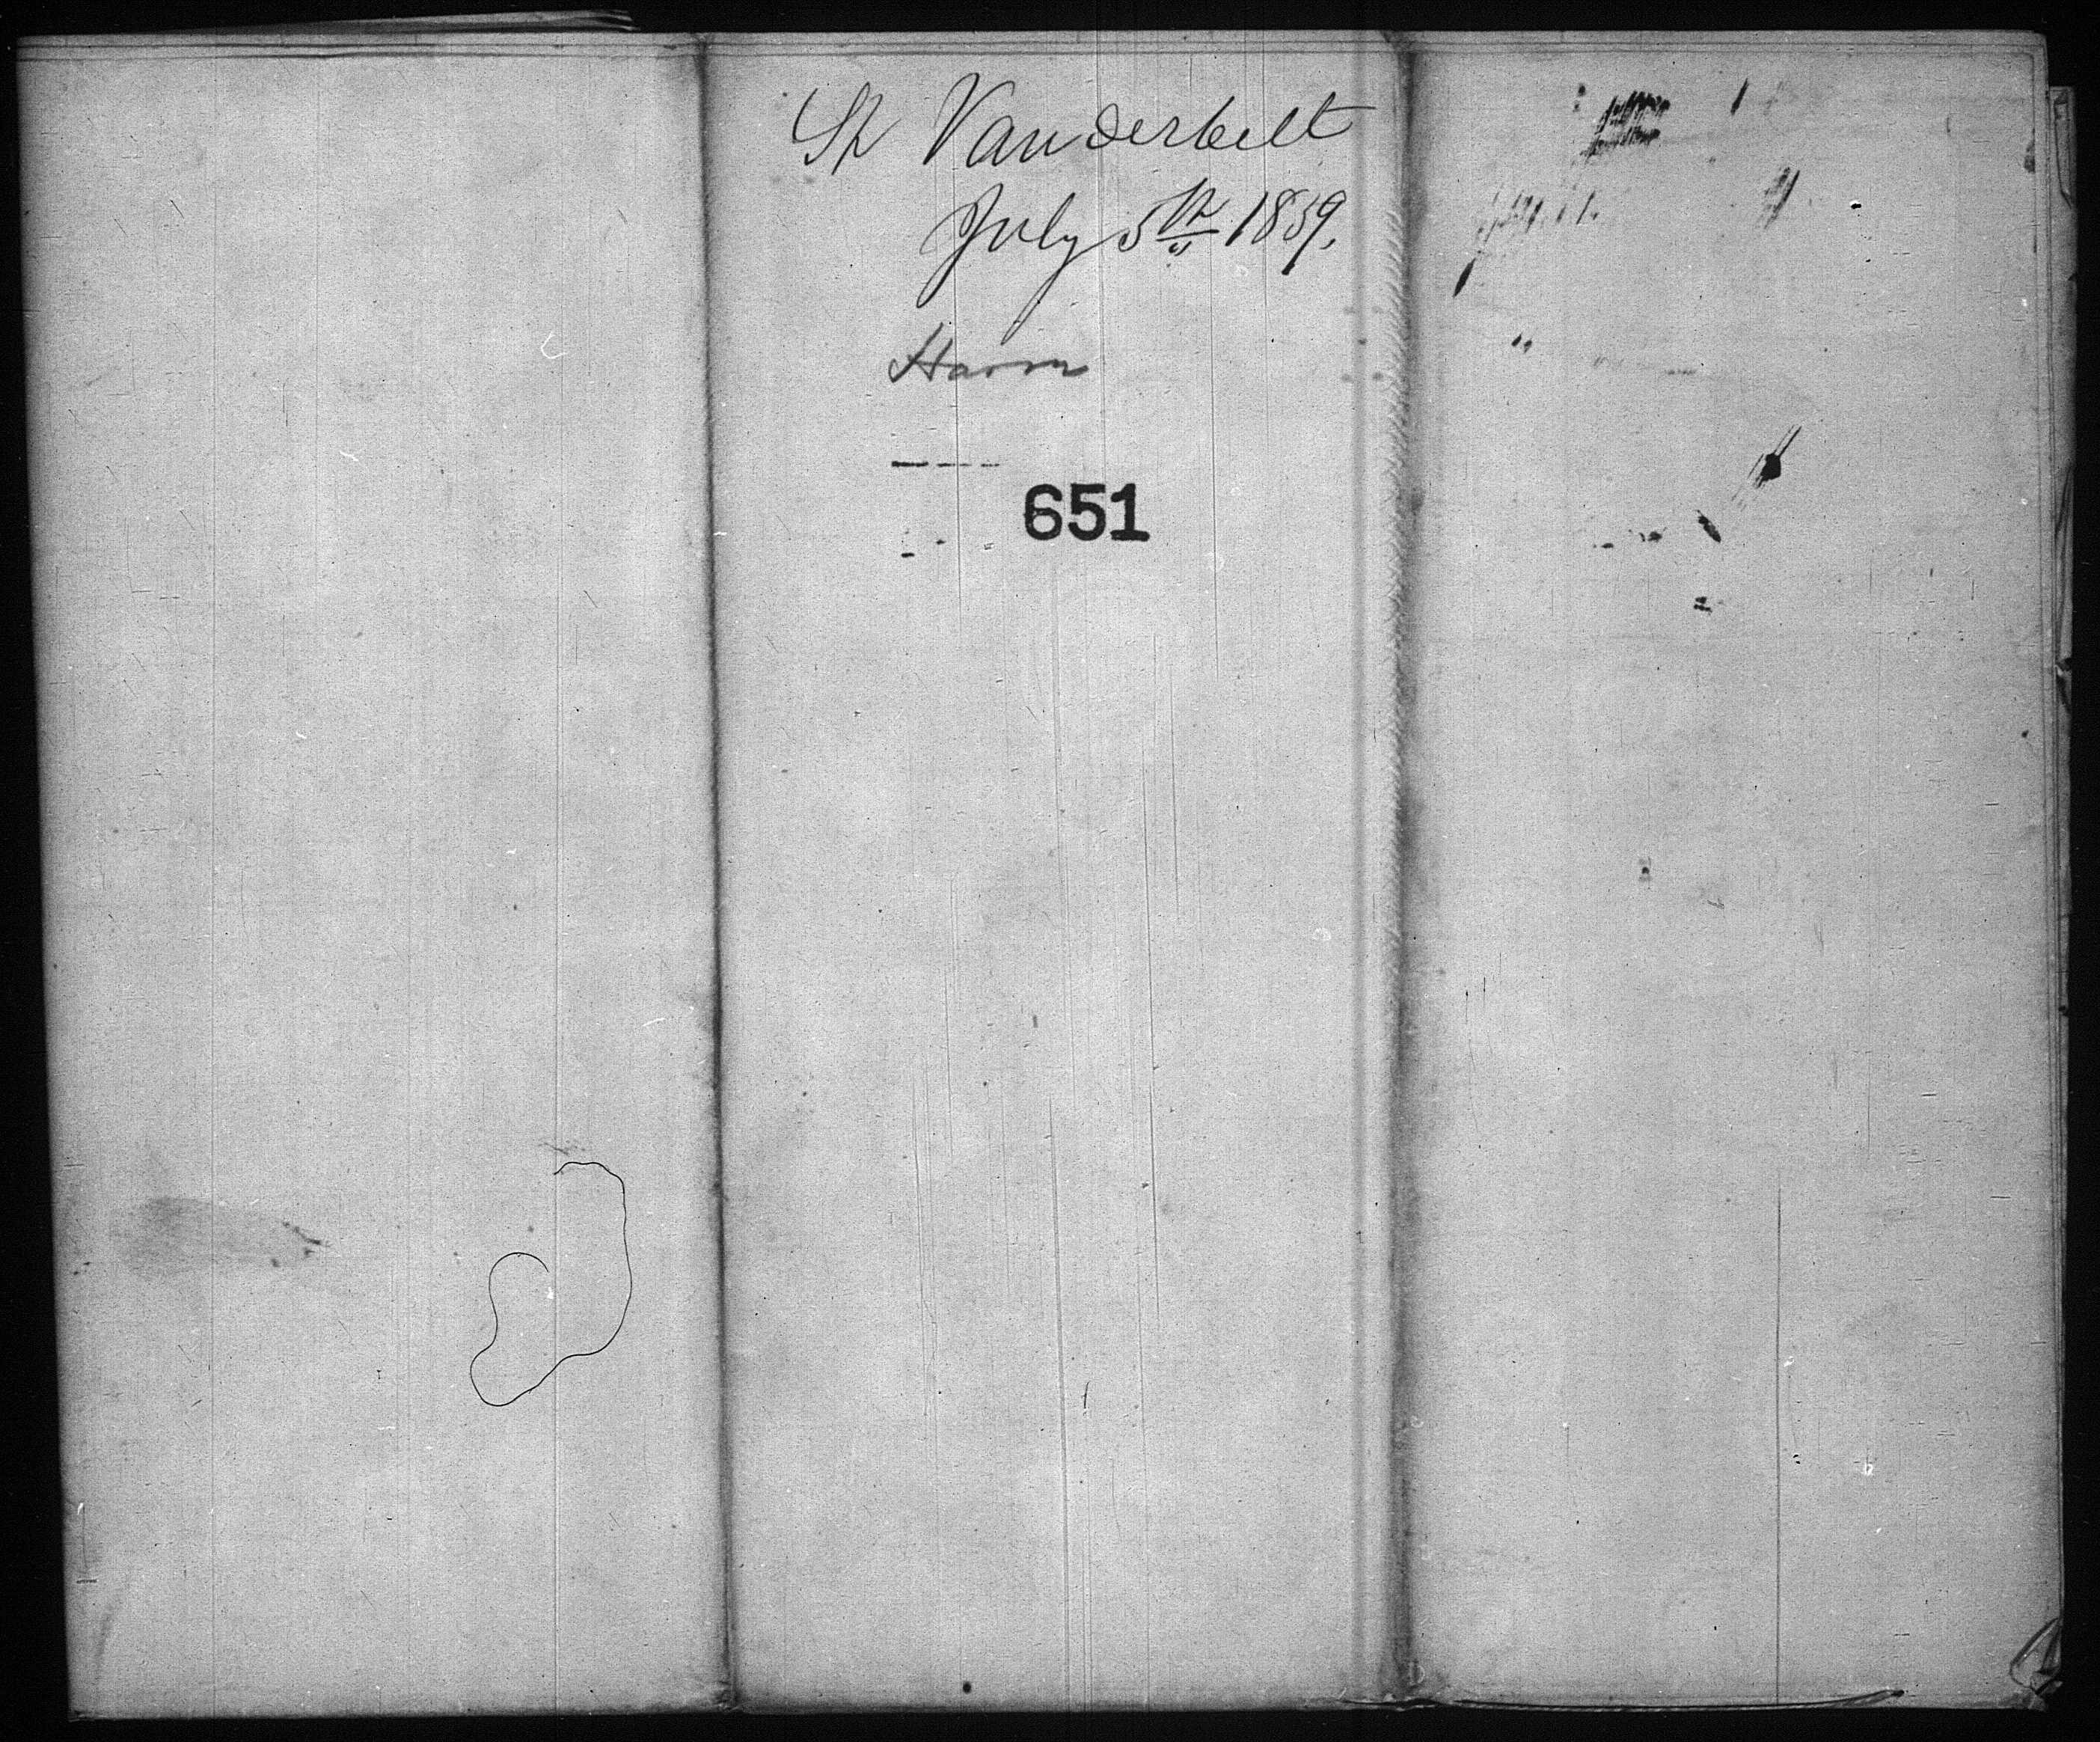 St Vanderbelt
July 5th 1859.
Havre
651